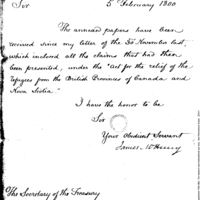 Sir 5 February 1800
The annexed papers have been
received since my letter of the 30 November last,
which inclosed all the claims that had then
been presented, under the "act for the relief of the
refugees from the British Provinces of Canada and
Nova Scotia."
I have the honor to be
Sir
Your Obedient Servant
James McHenry
The Secretary of the Treasury